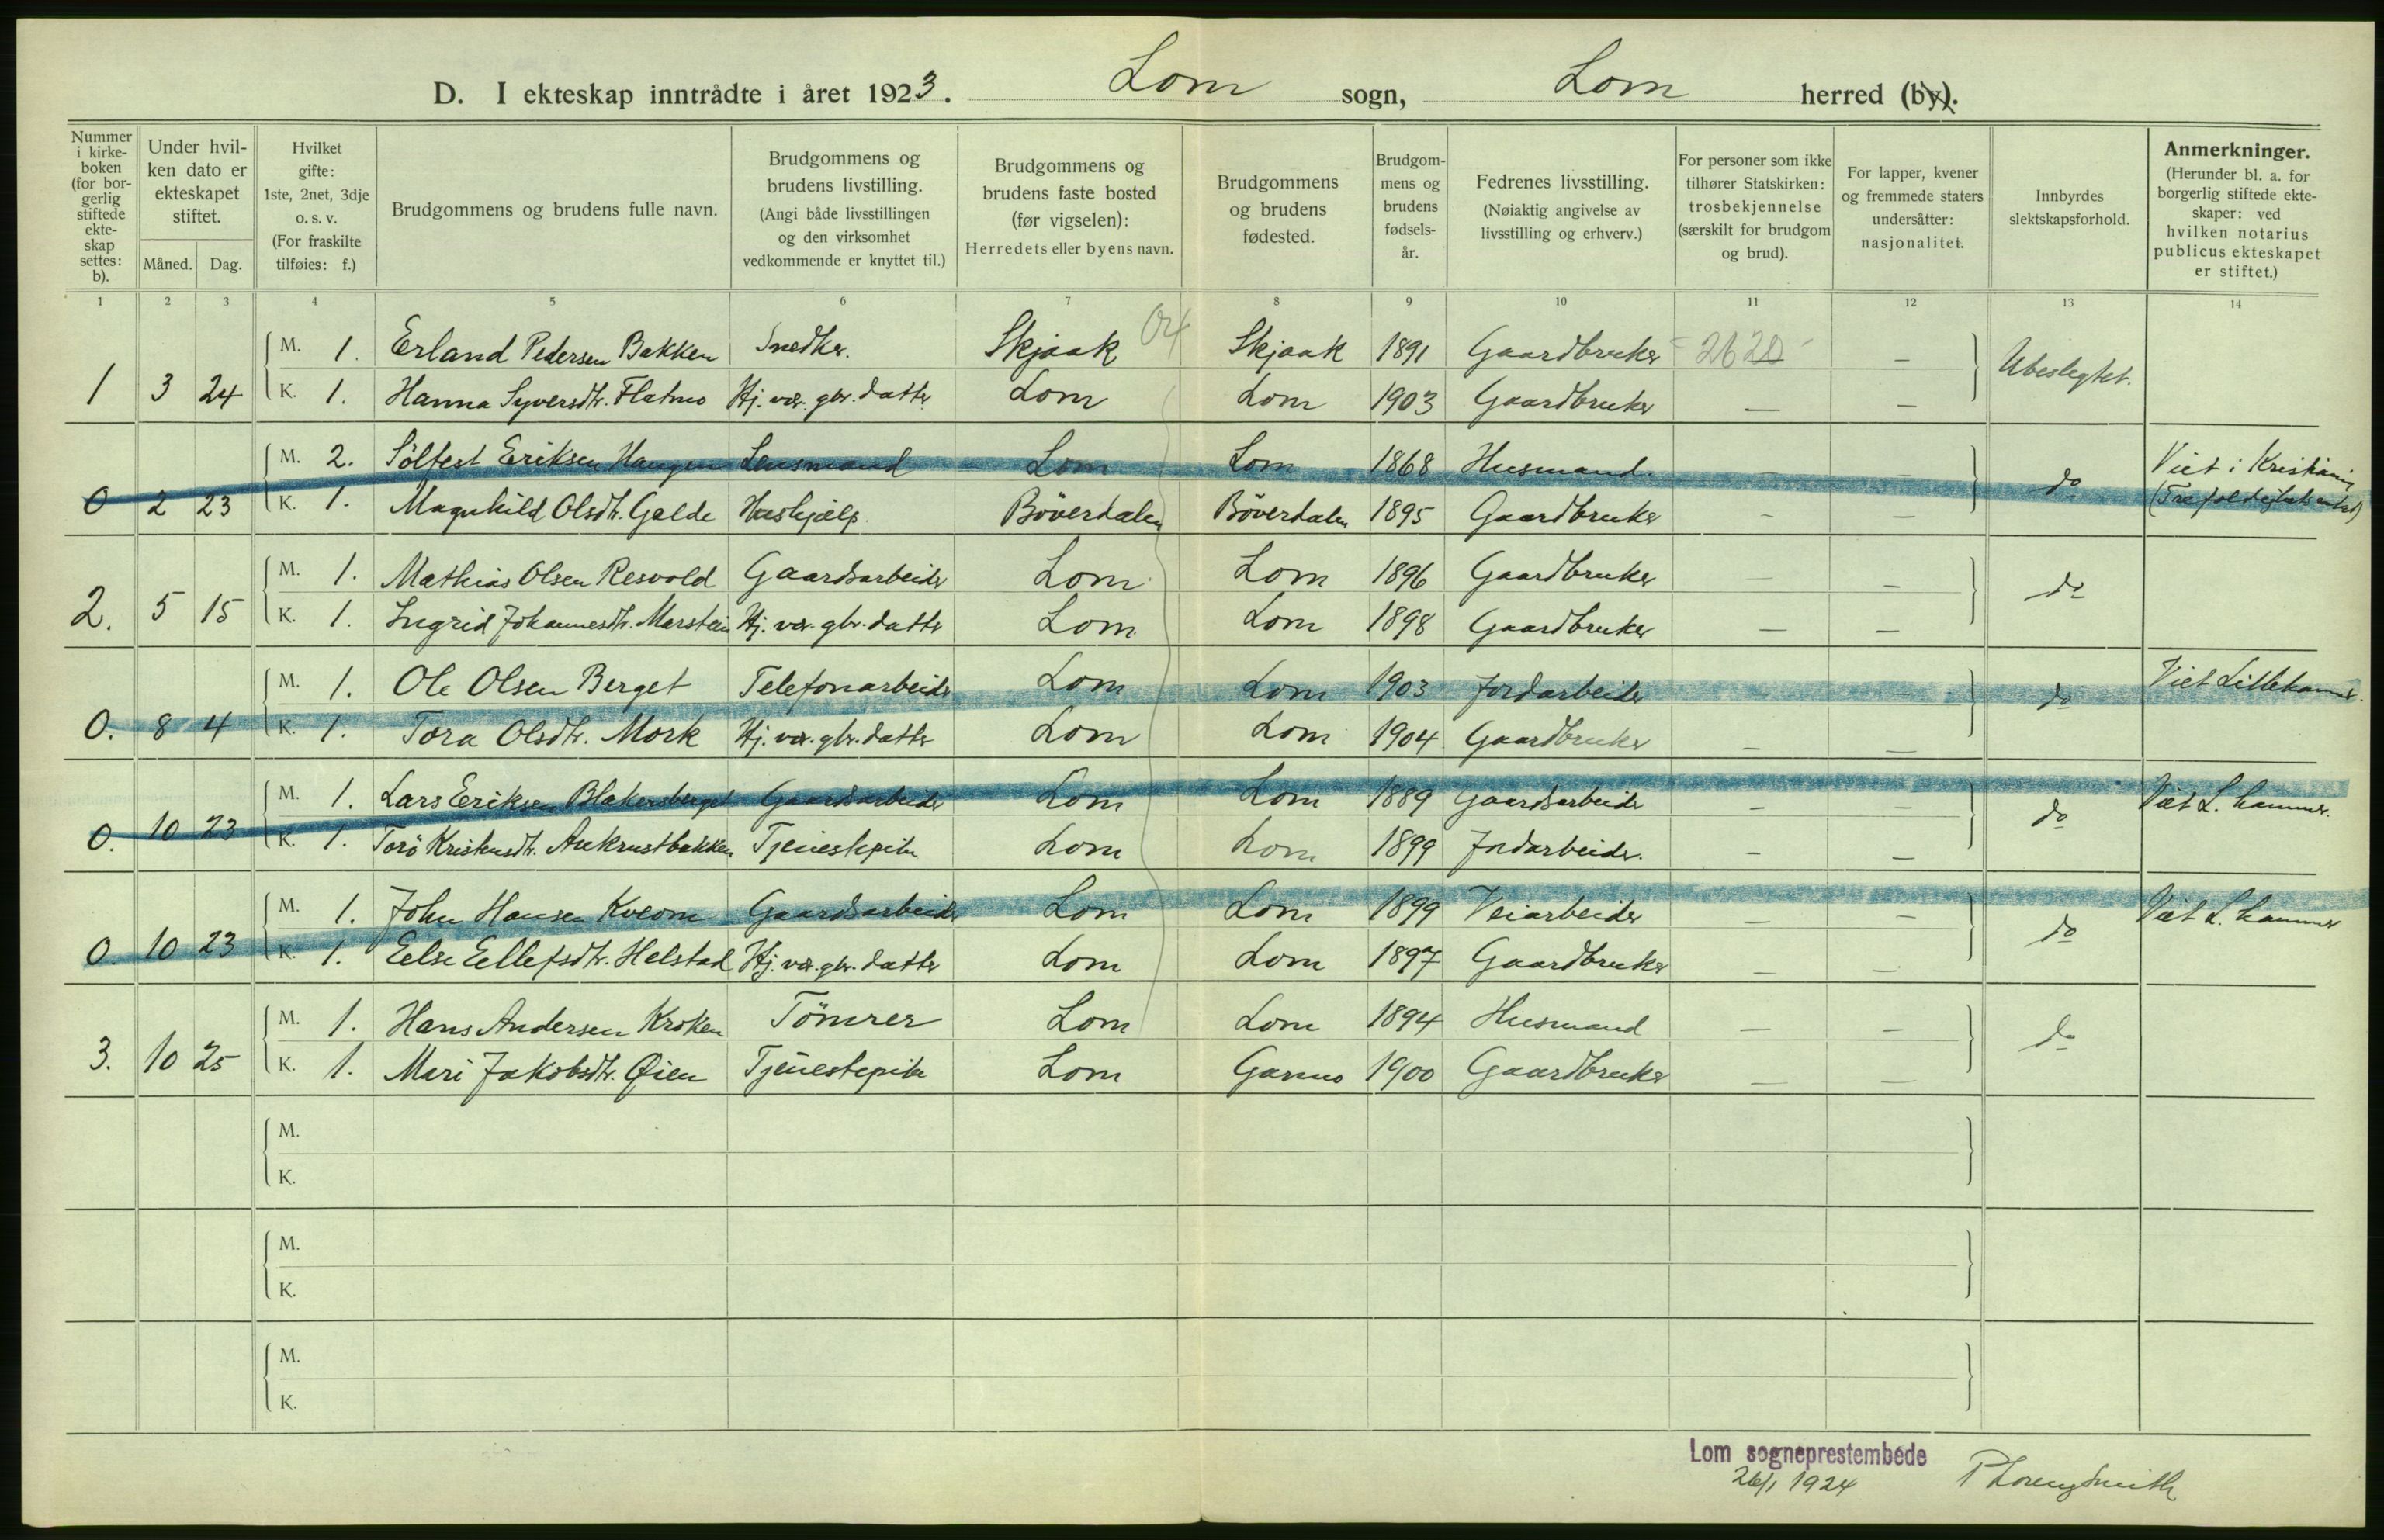 D. I ekteskap inntrådte i året 1923. Lom sogn, Lom herred (by).
Nummer i kirkeboken (for borgerlig stiftede ekteskap settes: b).
Under hvilken dato er ekteskapet stiftet.
Måned. Dag.
Hvilket gifte: 1ste, 2net, 3dje o. s. v. (For fraskilte tilføies: f.)
Brudgommens og brudens fulle navn.
Brudgommens og brudens livstilling. (Angi både livsstillingen og den virksomhet vedkommende er knyttet til.)
Brudgommens og brudens faste bosted (før vigselen): Herredets eller byens navn.
Brudgommens og brudens fødested.
Brudgommens og brudens fødselsår.
Fedrenes livsstilling. (Nøiaktig angivelse av livsstilling og erhverv.)
For personer som ikke tilhører Statskirken: trosbekjennelse (særskilt for brudgom og brud).
For lapper, kvener og fremmede staters undersåtter: nasjonalitet.
Innbyrdes slektskapsforhold.
Anmerkninger. (Herunder bl. a. for borgerlig stiftede ekteskaper: ved hvilken notarius publicus ekteskapet er stiftet.)
1 2 3 4 5 6 7 8 9 10 11 12 13 14
M. 1. Erland Pedersen Bakken Snedker. Skjaak Skjaak 1891 Gaardbruker 2620 —
1 3 24 K. 1. Hanna Syversdtr. Flatmo Hj. vær. gbr. datter Lom Lom 1903 Gaardbruker — — Ubeslegtet.
M. 2. Söltest Eriksen Haugen Lensmand Lom Lom 1868 Husmand. — — Viet i Kristiania
0 2 23 K. 1. Magnhild Olsdtr. Galde Hushjælp. Böverdalen Böverdalen 1895 Gaardbruker — — do (Trefoldighetsmenh)
M. 1. Mathias Olsen Resvold Gaardsarbeider Lom Lom 1896 Gaardbruker — —
2. 5 15 K. 1. Ingrid Johannesdtr. Marstein Hj. vær. gbr. datter Lom Lom 1898 Gaardbruker — — do
M. 1. Ole Olsen Berget Telefonarbeider Lom Lom 1903 Jordarbeider Viet Lillehammer.
0. 8 4 K. 1. Tora Olsdtr. Mork Hj. vær. gbr. datter Lom Lom 1904 Gaardbruker — — do
M. 1. Lars Eriksen Blakersberget Gaardsarbeider Lom Lom 1889 Gaardsarbeider — — Viet L. hammer.
0. 10 23 K. 1. Torö Kristensdtr. Aukrustbakken Tjenestepike Lom Lom 1899 Jordarbeider. — — do
M. 1. John Hansen Kveom Gaardsarbeider Lom Lom 1899 Veiarbeider — — Viet L. hammer
0. 10 23 K. 1. Eelse Eellefsdtr. Helstad Hj. vær. gbr. datter Lom Lom 1897 Gaardbruker — — do
M. 1. Hans Andersen Kroken Tömrer Lom Lom 1894 Husmand — —
3. 10 25 K. 1. Mari Jakobsdtr. Øien Tjenestepike Lom Garmo 1900 Gaardbruker — — do
M.
K.
M.
K.
M.
K.
Lom sogneprestembede
26/1 1924 P Lorenz Smith